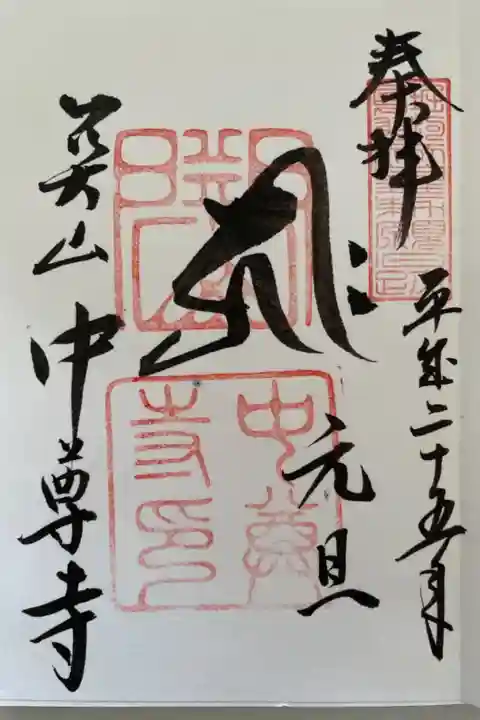 奉拝
平成二十五年
元旦
関山 中尊寺
中尊
寺印